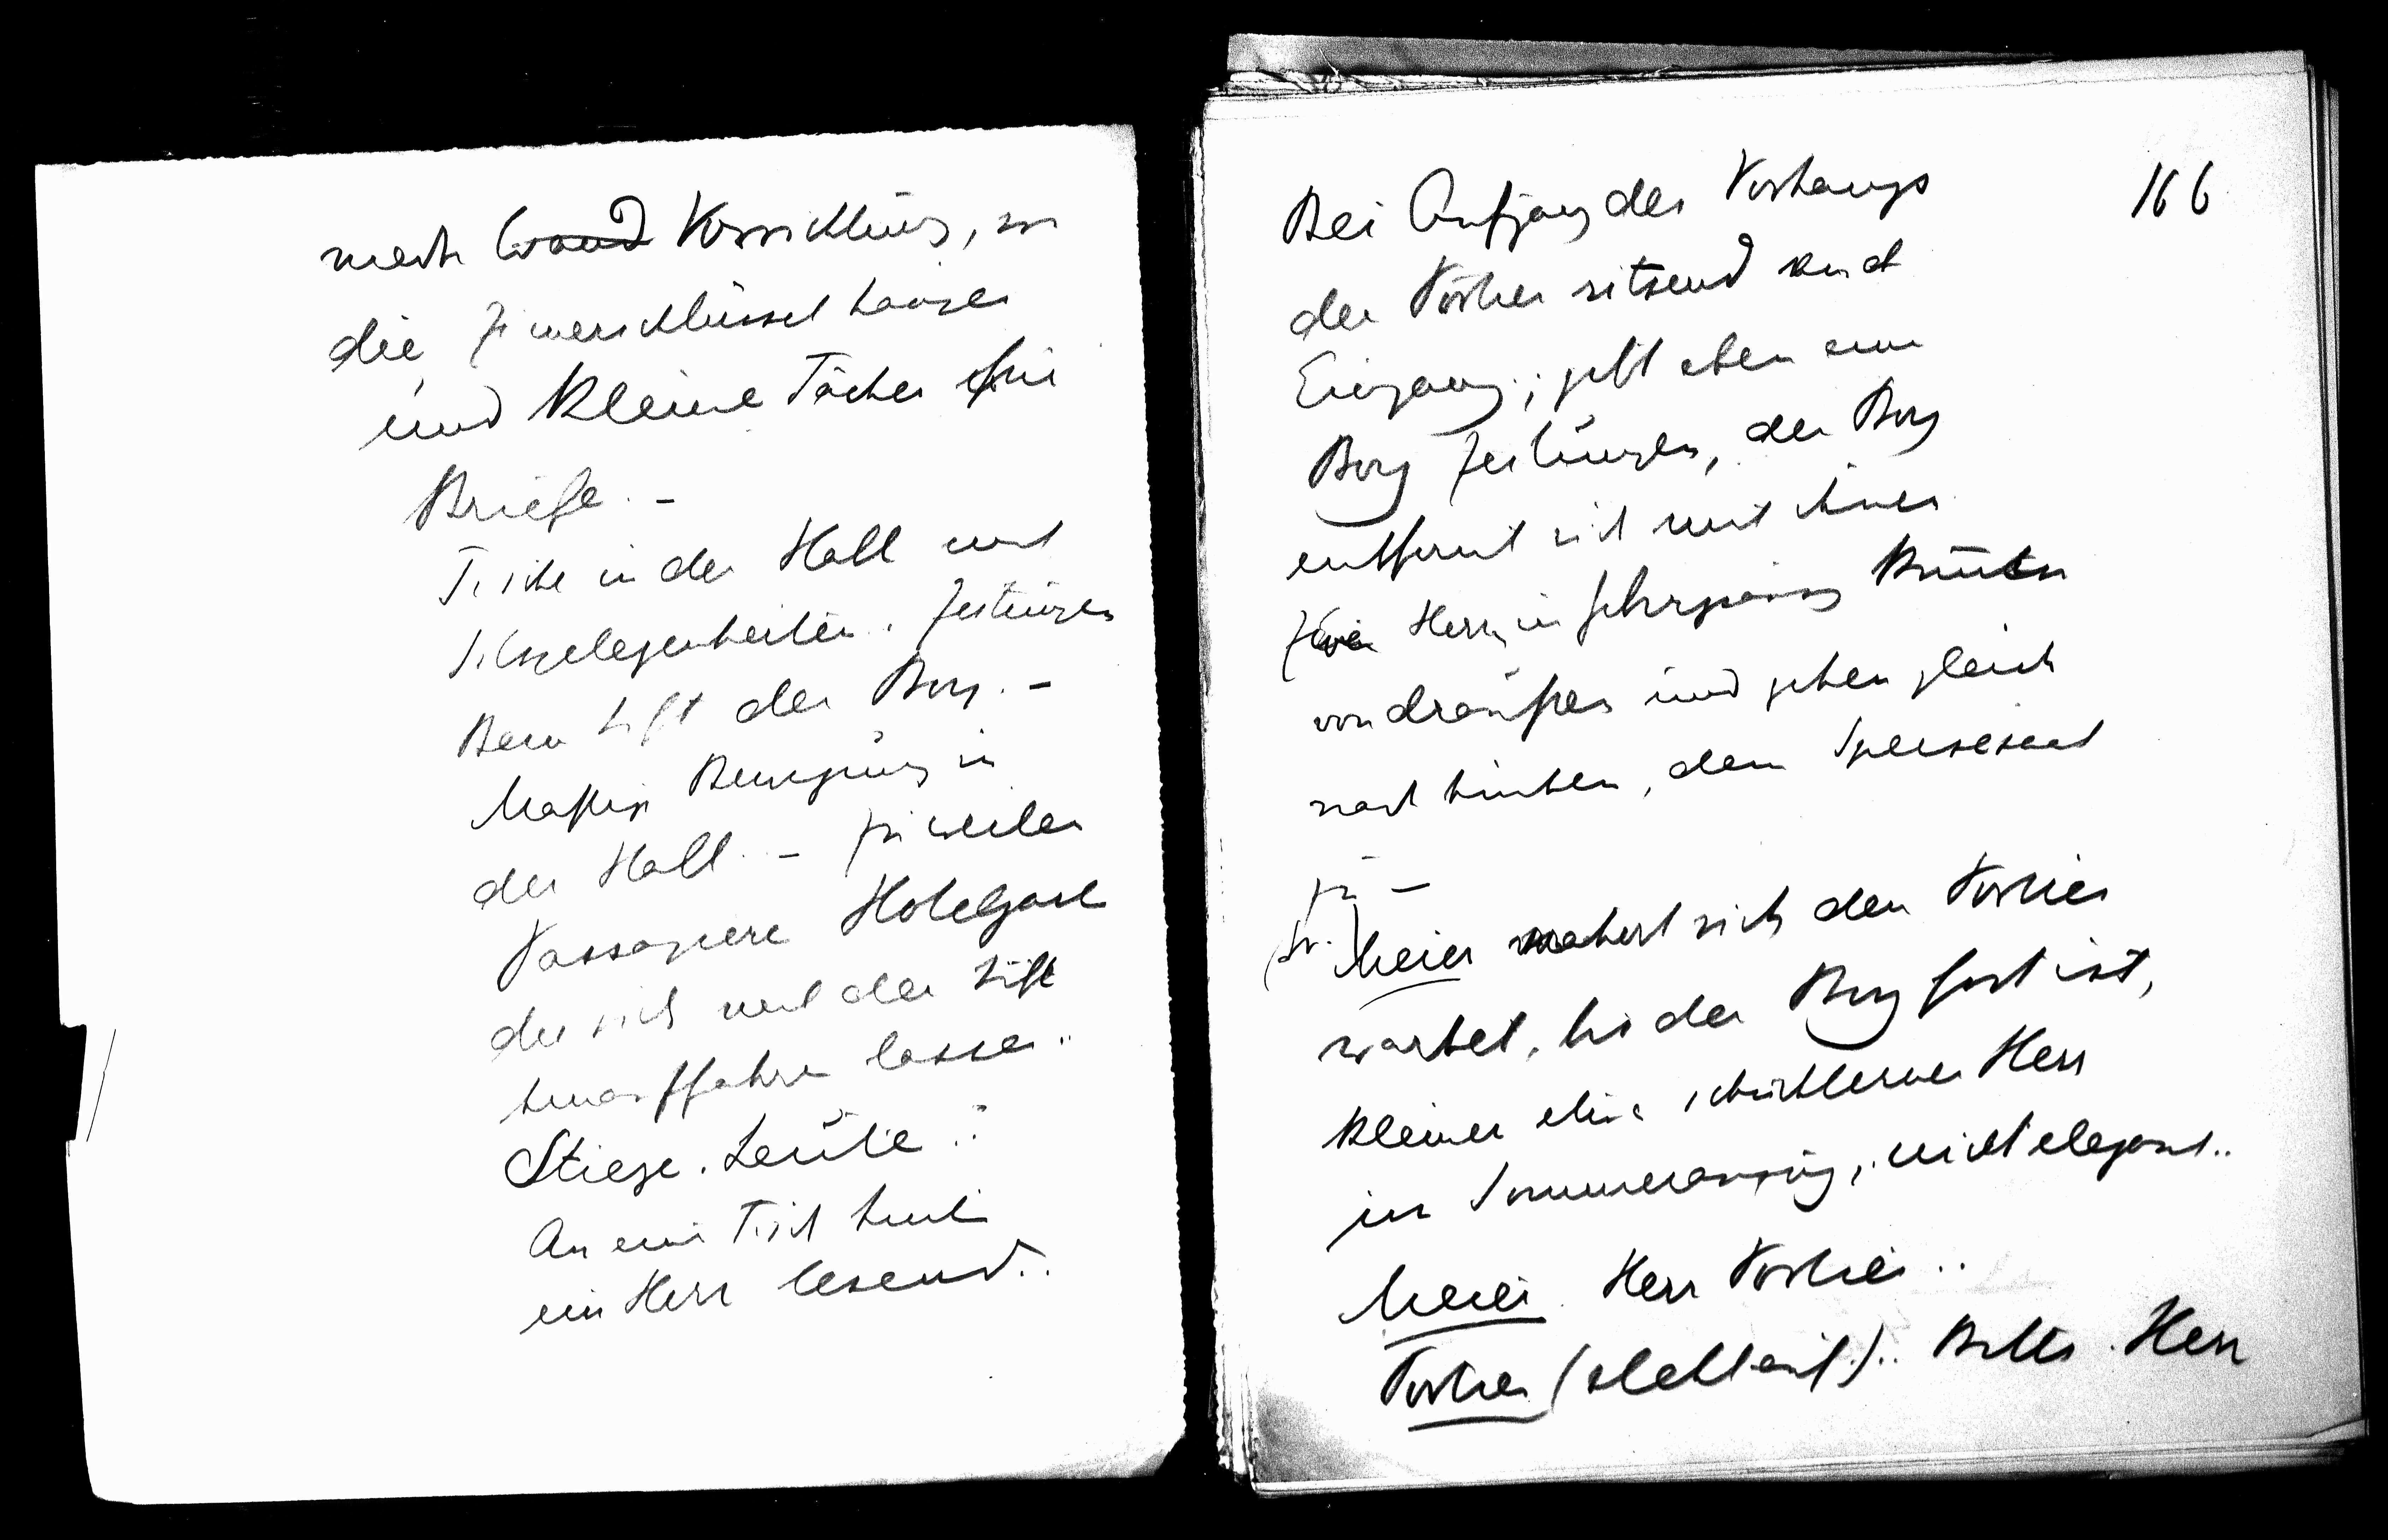 nech Wand Vorrichtung, wo
die Zimmerschlüssel hängen
und kleine Fächer für
Briefe. –
Tische in der Hall und
Sitzgelegenheiten. Zeitungen
Beim Lift der Boy. –
Mäßige Bewegung in
der Hall. – zuweilen
Passagiere Hotelgäste
die sich mit der Lift
hinauffahren lassen..
Stiege. Leute ..
An einem Tisch
ein Herr lesend..
166
Bei Aufgang des Vorhangs
der Portier sitzend
Eingang; gibt eben einem
Boy Zeitungen, der Boy
entfernt sich mit ihnen
Zwei Herrn in
von draußen und gehen gleich
nach hinten, dem Speisesaal
zu –
Meier nähert sich dem Portier
wartet, bis der Boy fort ist,
kleiner etwas schüchterner Herr
im Sommeranzug, nicht elegant..
Meier. Herr Portier..
Portier (steht auf).. Bitte. Herr